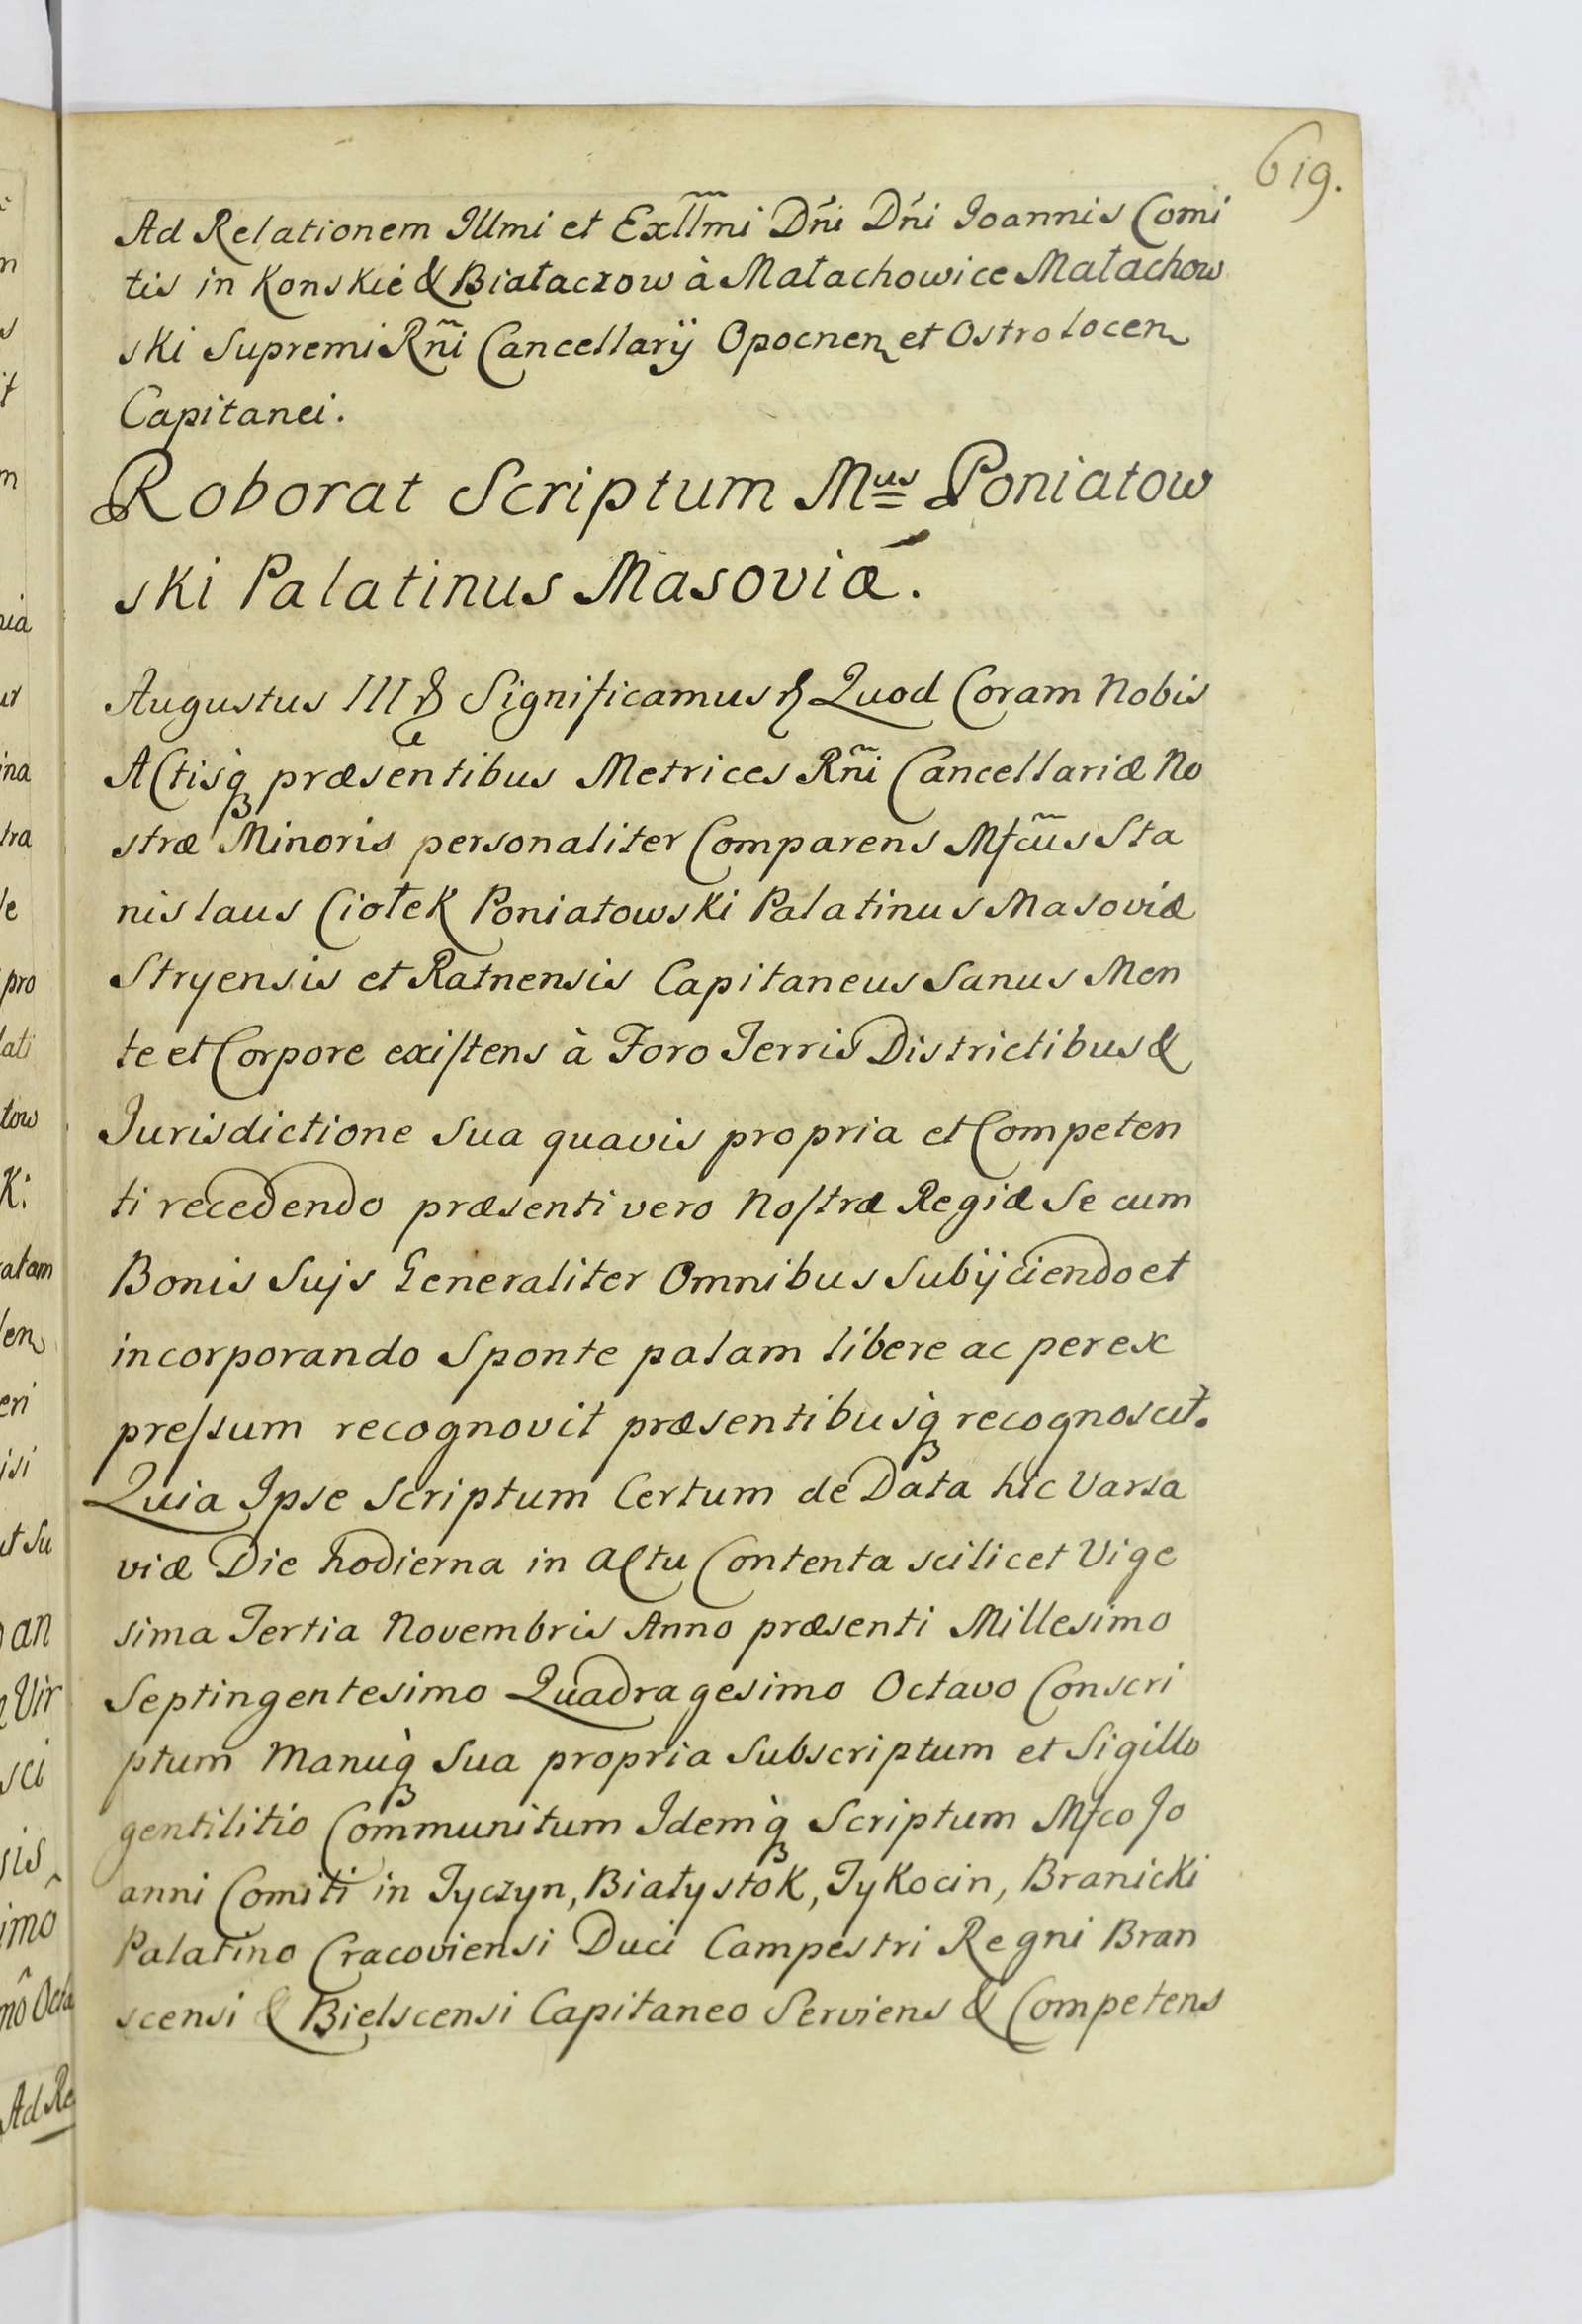 619.
Ad Relationem Illmi et Exllmi Dni Dni Joannis Comi
tis in Konskie & Białaczow à Małachowice Małachow
ski Supremi Rñi Cancellarij Opocnen et Ostrolocen
Capitanei.
Roborat Scriptum Mus Poniatow
ski Palatinus Masoviæ.
Augustus III & Significamus & Quod Coram Nobis
Actisq præsentibus Metrices Rñi Cancellariæ No
stræ Minoris personaliter Comparens Mfcũs Sta
nislaus Ciołek Poniatowski Palatinus Masoviæ
Stryensis et Ratnensis Capitaneus Sanus Men
te et Corpore existens à Foro Terris Districtibus &
Jurisdictione Sua quavis propria et Competen
ti recedendo præsenti vero Nostræ Regiæ Se cum
Bonis Sujs Generaliter Omnibus Subijciendo et
incorporando Sponte palam libere ac per ex
pressum recognovit præsentibusq recognoscit.
Quia Ipse Scriptum Certum de Data hic Varsa
viæ Die hodierna in Actu Contenta scilicet Vige
sima Tertia Novembris Anno præsenti Millesimo
Septingentesimo Quadragesimo Octavo Conscri
ptum Manuq Sua propria Subscriptum et Sigillo
gentilitio Communitum Idemq Scriptum Mfco Jo
anni Comiti in Tyczyn, Białystok, Tykocin, Branicki
Palatino Cracoviensi Duci Campestri Regni Bran
scensi & Bielscensi Capitaneo Serviens & Competens